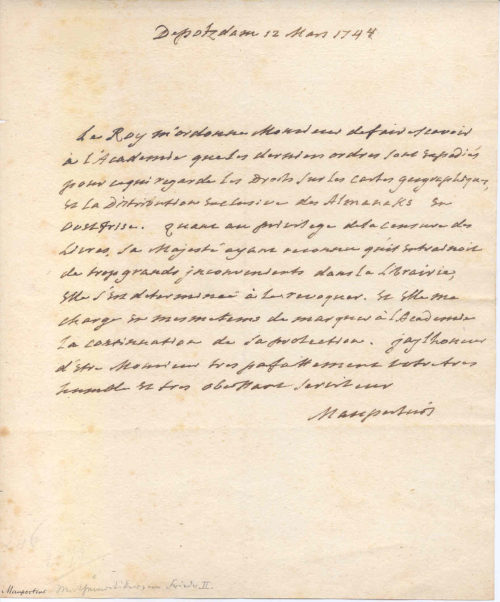 De potzdam 12 Mars 1748
Le Roy m'ordonne Monsieur de faire scavoir
à l'Academie que les derniers ordres sont Expediés
pour ce qui regarde les Droits sur les cartes geographiques,
Et la Distribution Exclusive des Almanaks En
Oostfrise. quant au privilege de la censure des
Livres, Sa Majesté ayant reconnu qu'il Entrainoit
de trop grands inconvenients dans la Librairie,
Elle s'est determineé à le revoquer. Et Elle me
charge En mesme tems de marquer à l'Academie
la continuation de sa protection. jay l'honneur
d'Etre Monsieur tres parfaittement votre tres
humble Et tres obeissant Serviteur
Maupertuis
Maupertuis